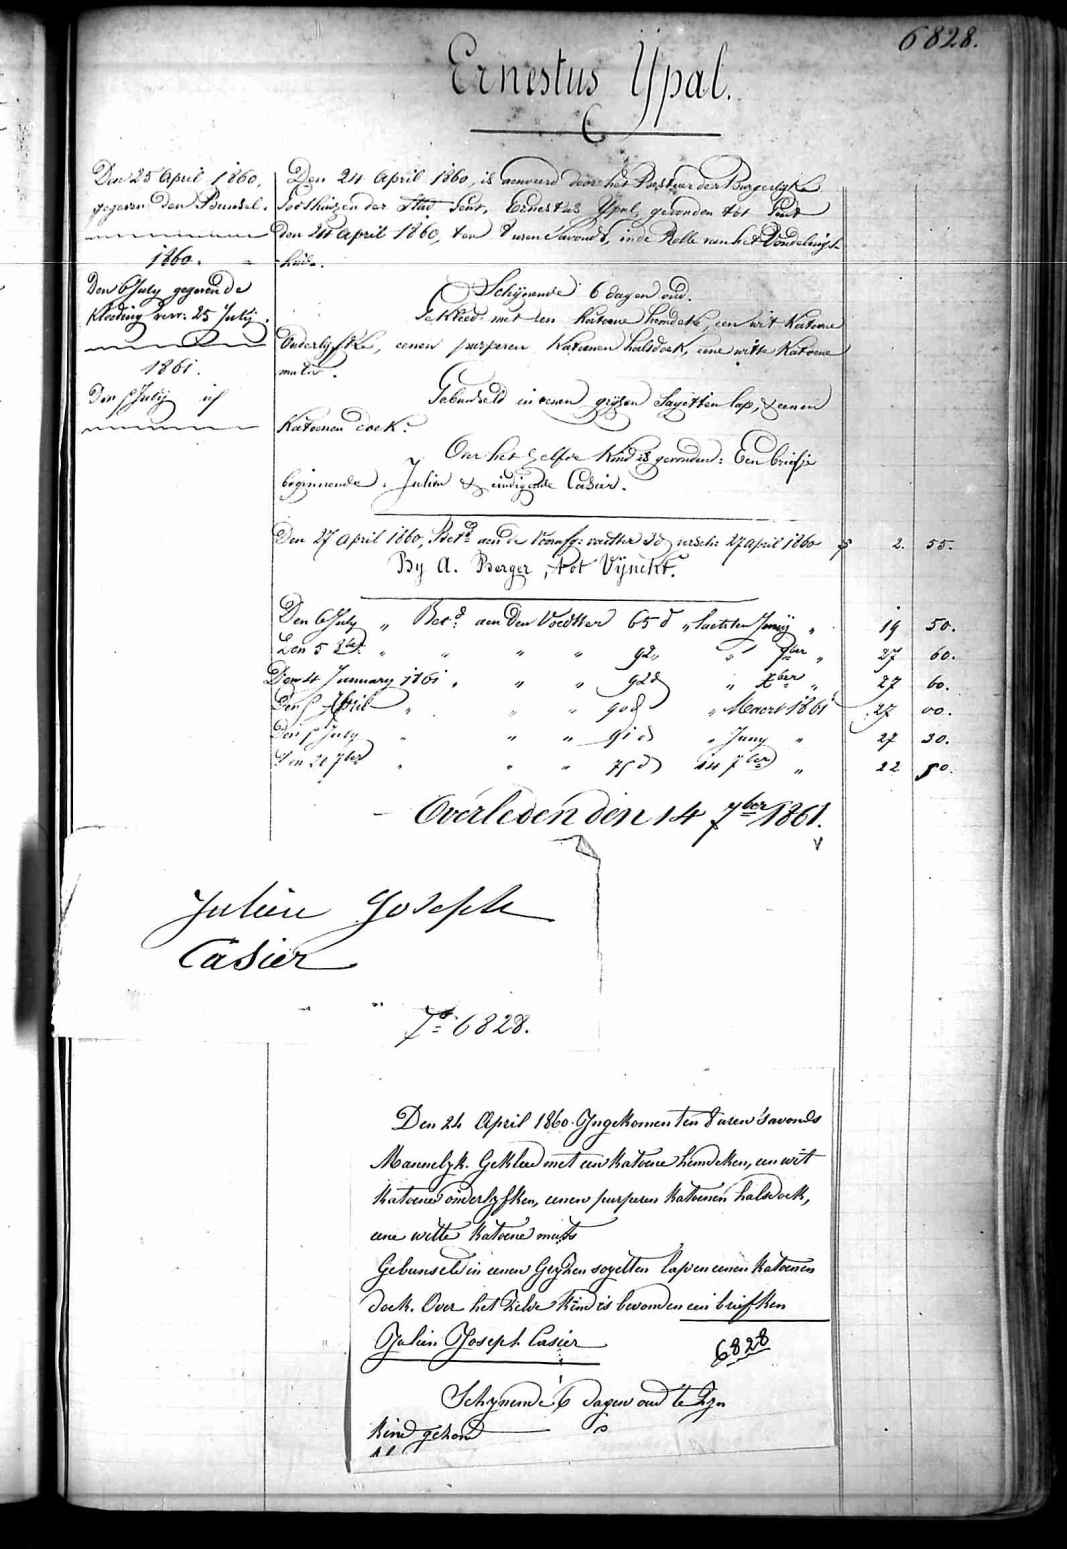 6828.
Ernestus Ypal.
Den 25 April 1860,
gegeven den Bunsel.
1860.
Den 6 July gegeven de
kleeding verv: 25 July.
1861.
Den July
Den 24 April 1860, is aenveerd door het Bestuer der Burgerlyke
Godshuizen der Stad Gent, Ernestus Ypal, gevonden tot Gent
den 24 April 1860, ten 8 uren 's avonds, in de Rolle van het Vondelingsh
huis.
Schijnende 6 dagen oud.
Gekleed met een katoene hemdeke, een wit katoene
Onderlyfke, eenen purperen katoenen halsdoek, eene witte katoene
muts.
Gebunseld in eenen gryzen Sayetten lap, & eenen
Katoenen doek.
Over het zelfve Kind is gevonden: Een briefje
beginnende: Julien & eindigende Casier.
Den 27 April 1860, Bet.d aen de Voornfg: voedster 3 d versch: 27 April 1860 2. 55.
By A. Berger, tot Vijnckt.
Den 6 July " Bet.d aen den Voedster 65 d " laetsten Juny " 19 50.
Den 5 8ber " " " " 92 " " 7ber " 27 60.
Den 4 January 1861 " " " 92 d " Xber " 27 60.
Den April " " " 90 d " Maert 1861 27 00.
Den July " " " 91 d " Juny " 27 30.
Den 21 7ber " " " 75 d 14 7ber " 22 50.
Overleden den 14 7ber 1861.
Julien Joseph
Casier
6828.
Den 24 April 1860. Ingekomen ten 8 uren 's avonds
Mannelyk. Gekleed met een katoene hemdeken, een wit
katoene onderlyfken, eenen purperen katoenen halsdoek,
eene witte katoene muts
Gebunseld in eenen Gryzen sayetten lap en eenen katoenen
doek. Over het zelve kind is bevonden een briefken
Julien Joseph Casier 6828
Schynende 6 dagen oud te zyn
kind gezond